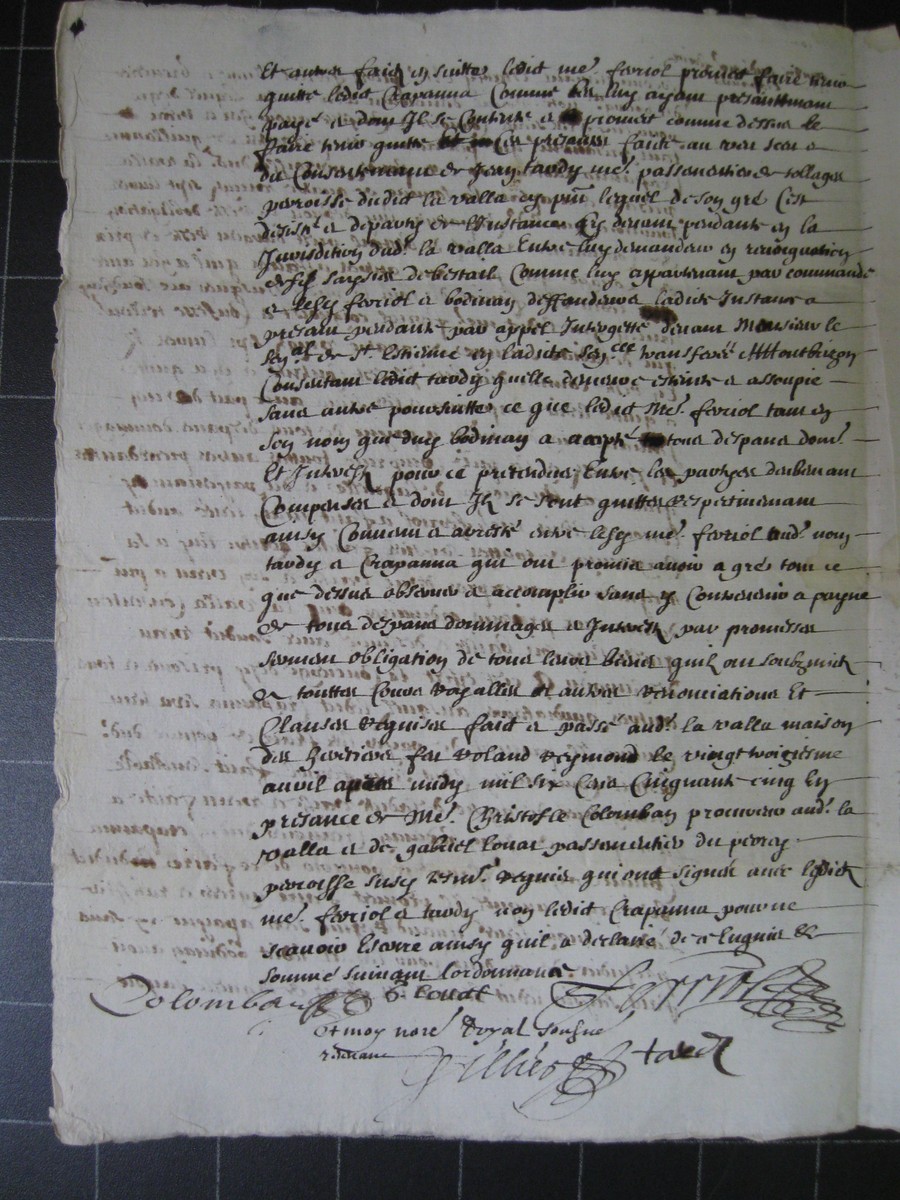 Et autres faict en suitte ledict me. ferriol promect faire tenir
quitte ledict Crapanna Comme luy ayant presantemant
payé et dont Il se Contente et promect comme dessus le
faire tenir quitte Ces presantes faicte au
du Consentement de Jean tardy me. passementier de tollages
parroisse dudict la valla cy pnt lequel de son gré s'est
desisté et departy de l'Instance pendante en la
Jurisdition dud. la valla Entre luy demandeur en
de saysie de bestail Comme luy appartenant par commande
et lesdictz ferriol et bodinan deffendeurs ladicte Instance a
presant pendante par appel Interjetté devant Monsieur le
de st. Estienne en ladicte transferé a Montbrizon
Consentant ledict tardy quelle demeure esteinte et assoupie
sans autre poursuitte ce que ledict Me. ferriol tant en
son nom que dudict bodinan a accepté tous despans dom.
Et Interestz pour ce pretendus Entre les parties demeurant
Compensés et dont Ilz se sont quittes respectivemant
ainsy Convenu et arresté entre lesdictz me. ferriol aud. nom
tardy et Crapanna qui ont promis avoir a gré tout ce
que dessus observer et accomplir sans y Contrevenir a payne
de tous despans dommages et Interestz par promesses
serment obligation de tous leurs biens quilz ont soubzmictz
a touttes Cours Royalles et autres renonciations Et
Clauses requises faict et passé aud. la valla maison
des heritiers feu Roland Reymond le vingt troiziesme
avril midy mil six Cens Cinquante cinq En
presance de Me. Christofle Colomban procureur aud. la
valla et de gabriel louat passementier du
parroisse susdicte tesm. requis qui ont signé avec lesdictz
me. ferriol et tardy non ledict Crapanna pour ne
scavoir Escrire ainsy quil a declairé de ce Enquis et
sommé suivant lordonnance
Colomban G. Louat Ferriol
Et moy nore. Royal soubgné
tardi